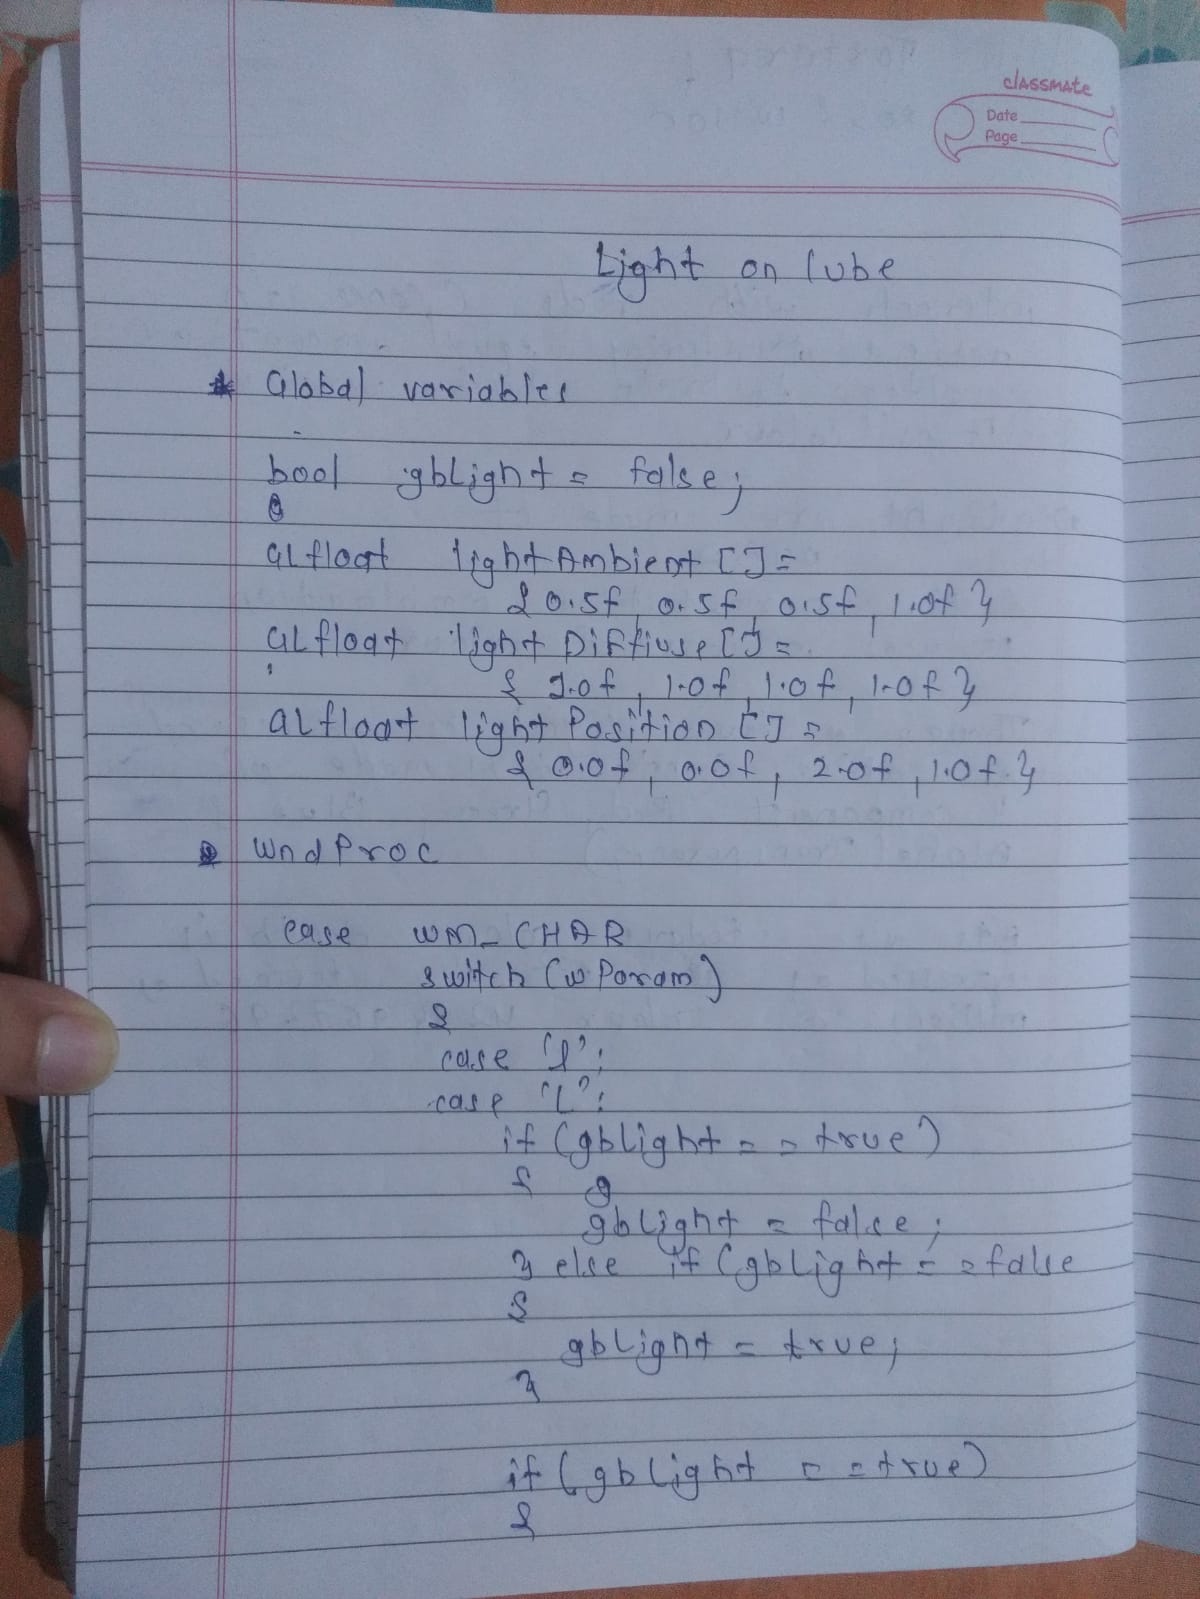 classmate
Date
Page
Light on Cube
* Global variables
bool gbLight = false;
GLfloat lightAmbient [] =
{ 0.5f, 0.5f, 0.5f, 1.0f }
GLfloat light Diffiuse [] =
{ 1.0f, 1.0f, 1.0f, 1.0f }
GLfloat light Position [] =
{ 0.0f, 0.0f, 2.0f, 1.0f }
WndProc
case WM_CHAR
switch (wParam)
{
case 'l':
case 'L':
if (gbLight == true)
{
gbLight = false;
} else if (gbLight == false
{
gbLight = true;
}
if (gbLight == true)
{